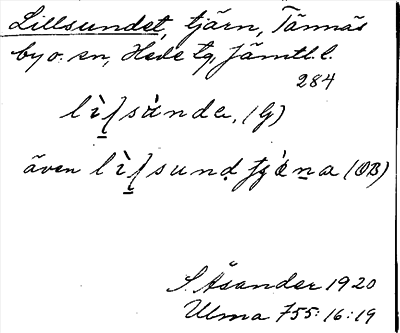 Lillsundet, tjärn, Tännäs
by o. sn, Hede tg, Jämtl. l.
284
lìʃsùnda, (G)
även lìʃsund̥ tjæ̀na (OB)
S. Åsander 1920
Ulma 755:16:19